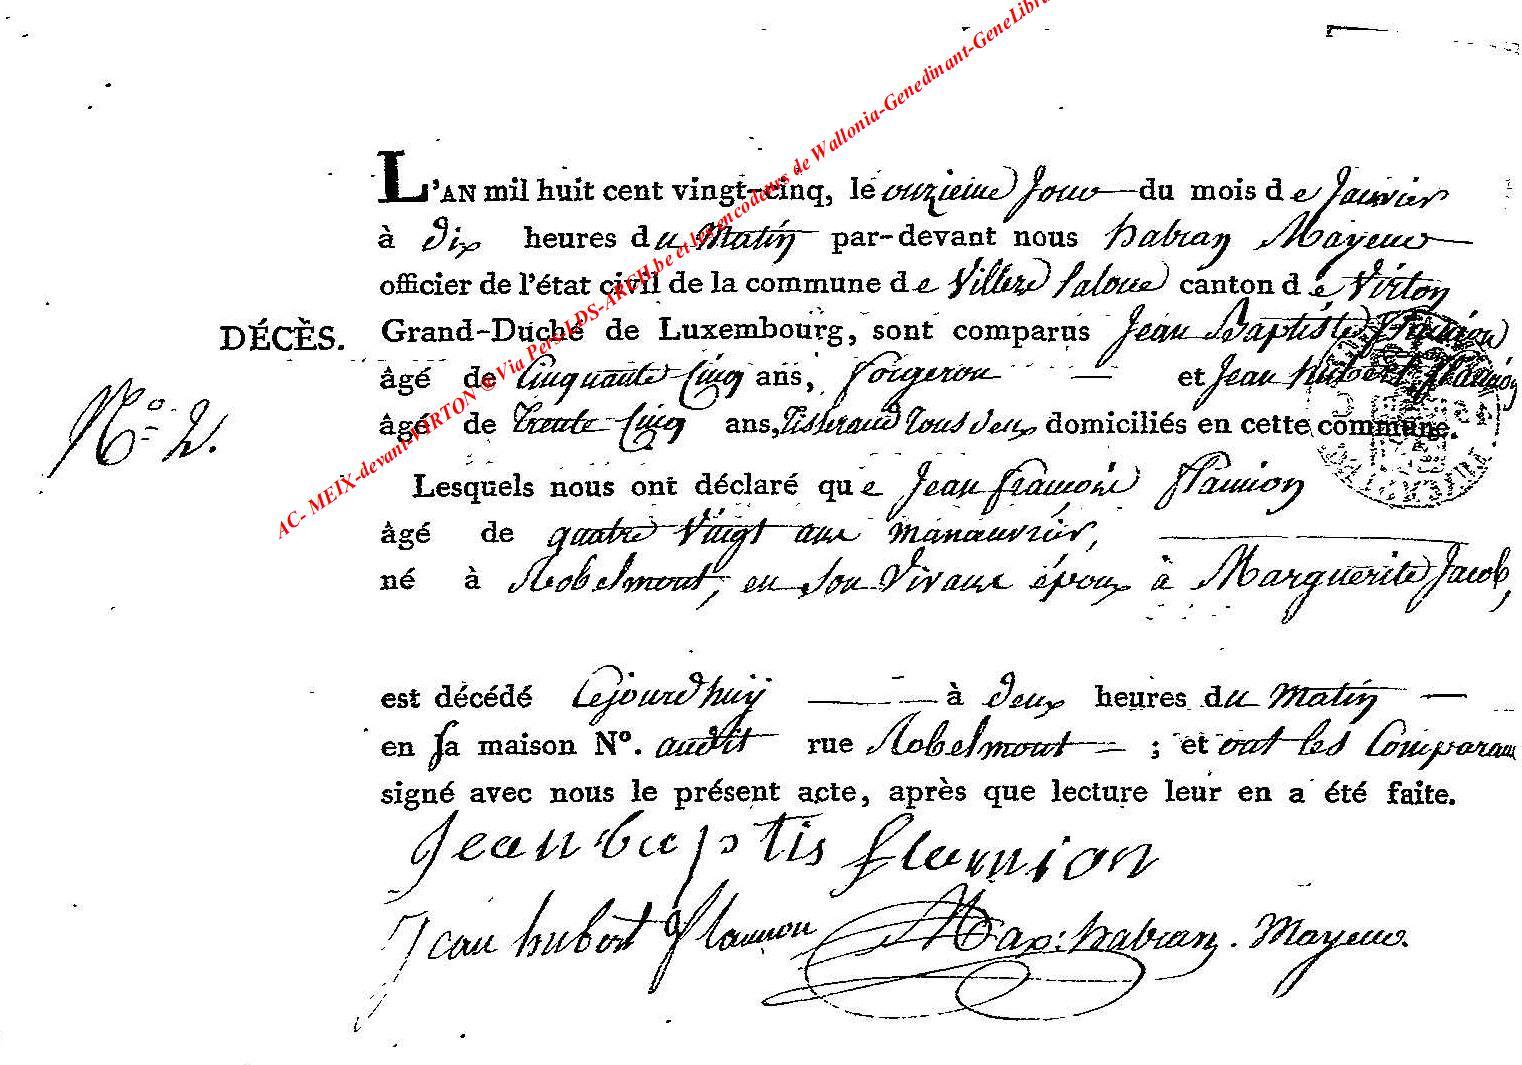 AC- MEIX-devant-VIRTON © Via Pers LDS-ARCH.be et les encodeurs de Wallonia-Genedinant-GeneLibr
L'AN mil huit cent vingt-cinq, le onzieme Jour du mois de Janvier
à Dix heures du Matin par-devant nous habran Mayeur
officier de l'état civil de la commune de Villers Laloue canton de Virton
DÉCÈS.
Grand-Duché de Luxembourg, sont comparus Jean Baptiste Flamion
âgé de Cinquante Cinq ans, forgeron et Jean hubert flamion
N.º 2.
âgé de Trente Cinq ans, Tisserand Tous Deux domiciliés en cette commune.
Lesquels nous ont déclaré que Jean françois flamion
âgé de quatre Vaigt ans manœuvrier,
né à Robelmont, en son Vivant époux à Marguerite Jacob,
est décédé Cejourdhuy à Deux heures du Matin
en sa maison Nº. audit rue Robelmont ; et ont les Comparans
signé avec nous le présent acte, après que lecture leur en a été faite.
Jean baptis flamion
Jean hubert flamion Max: habran. Mayeur.